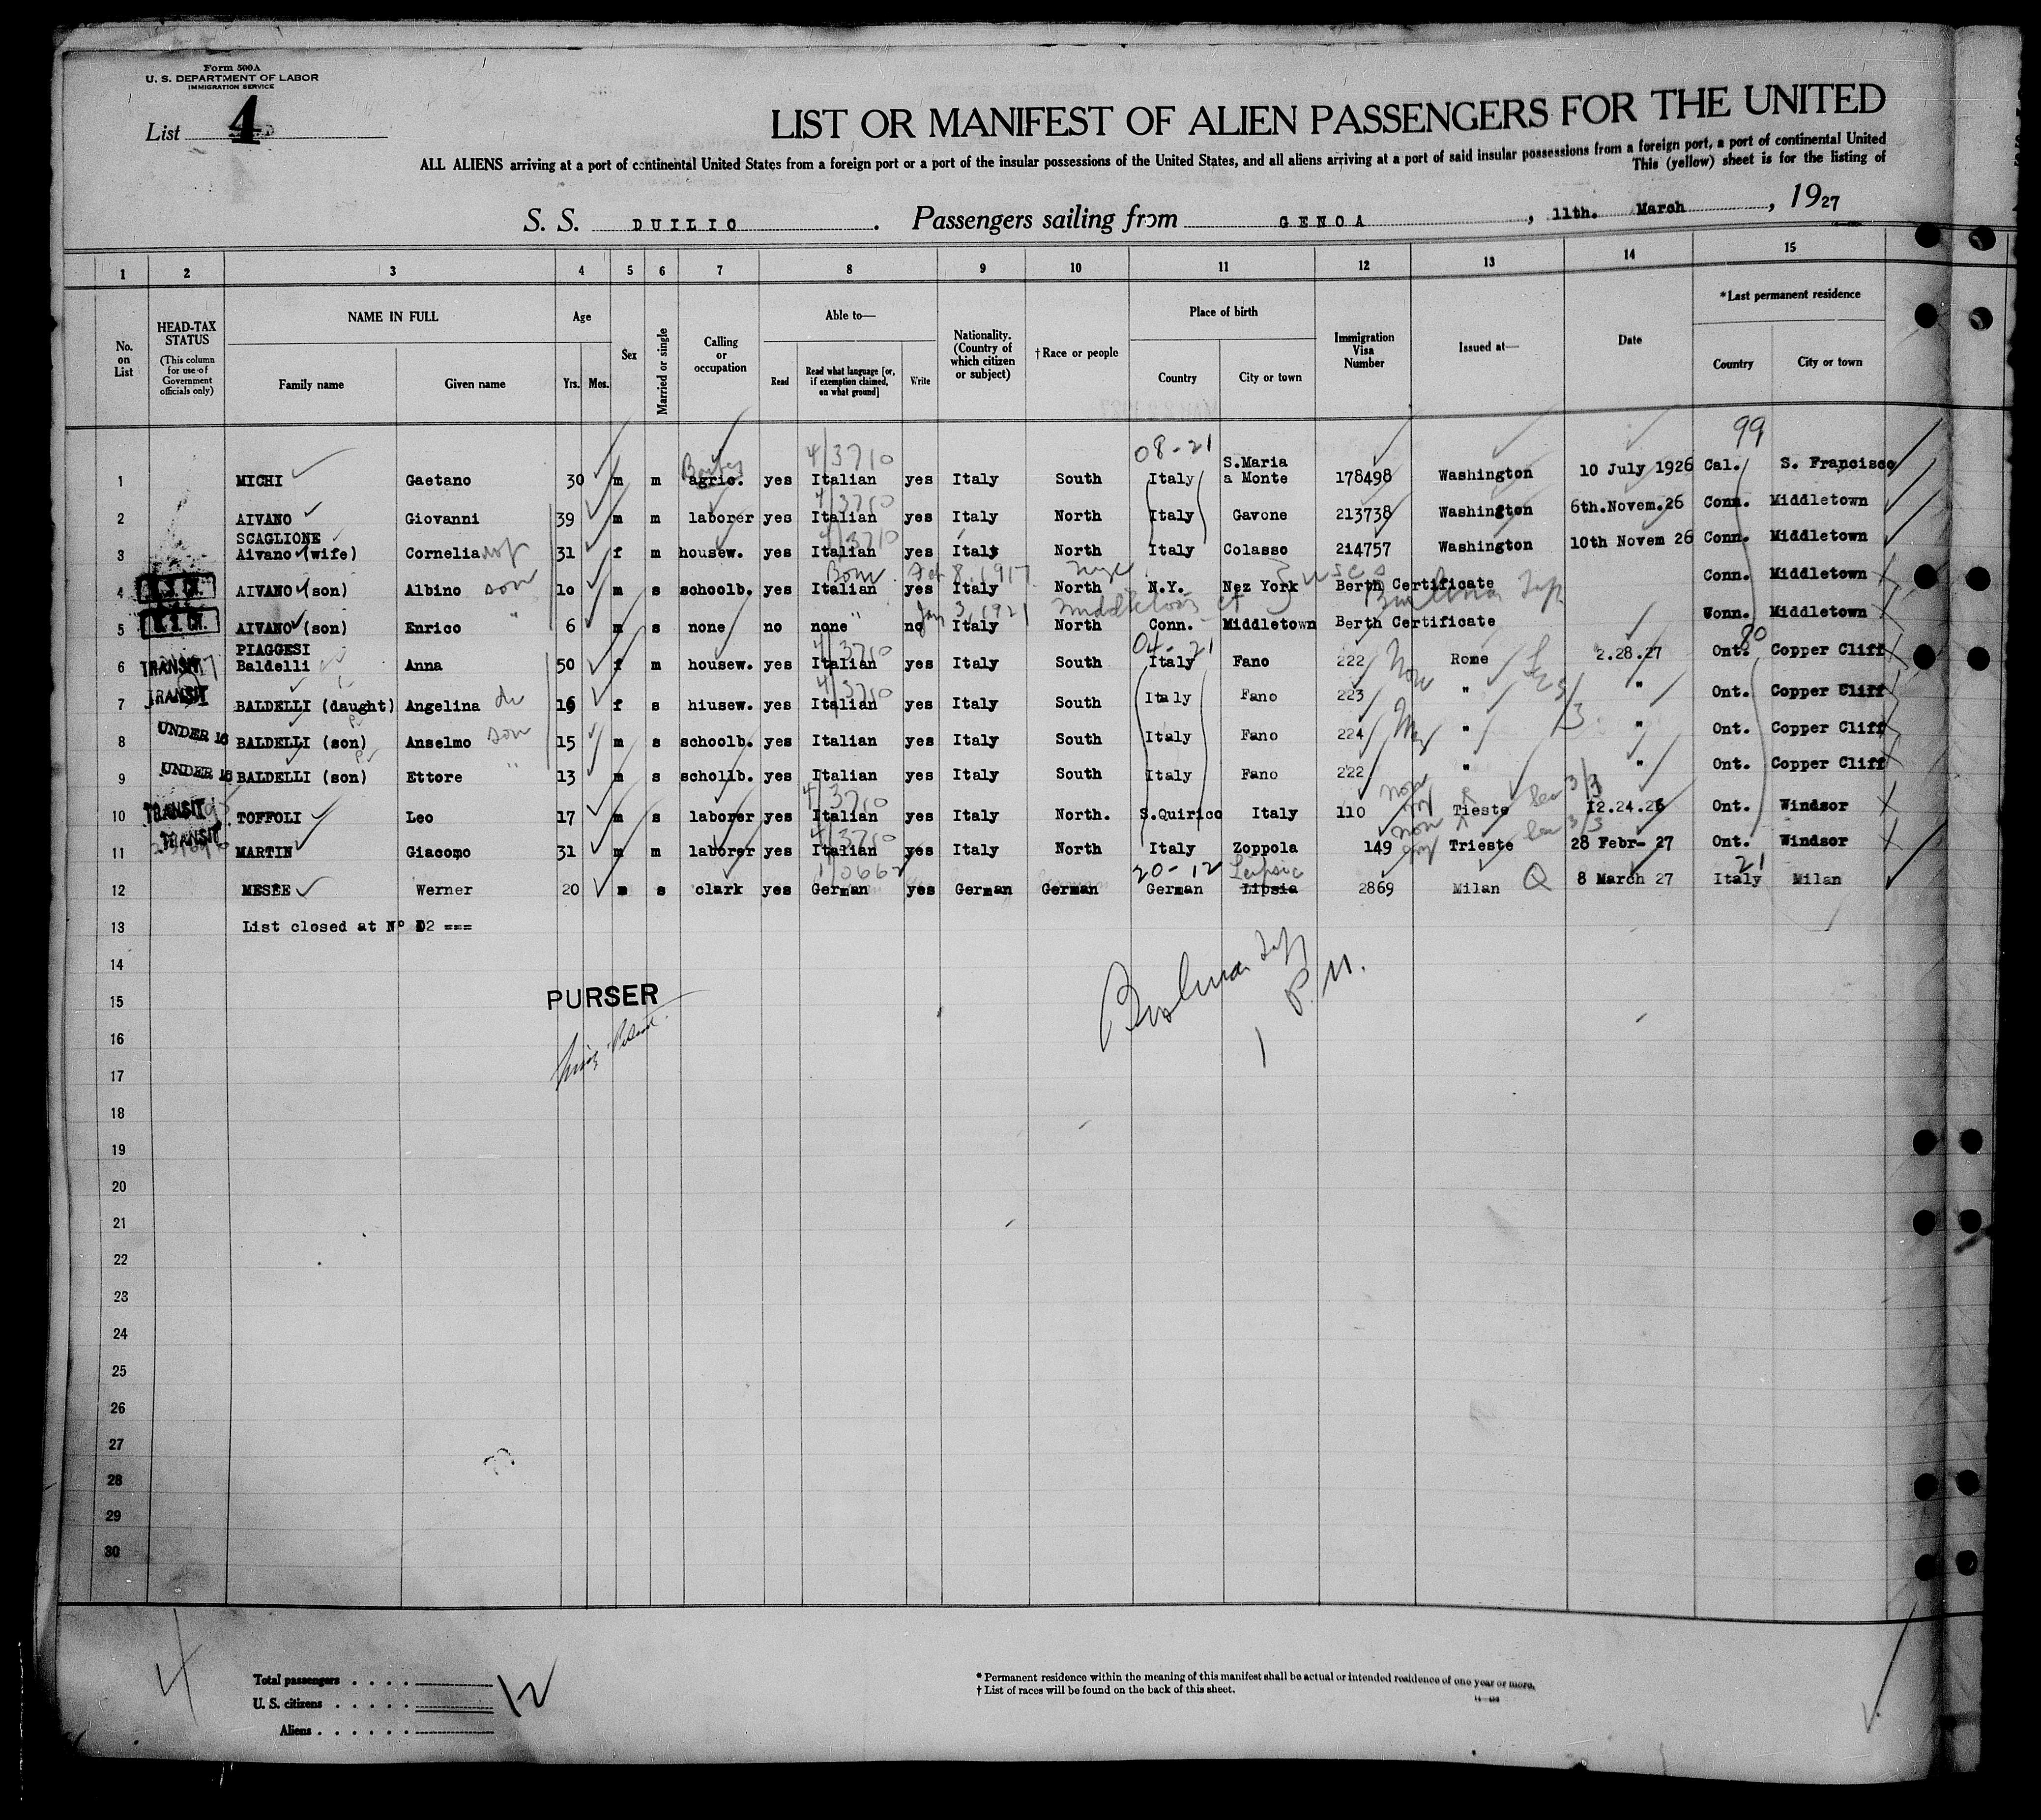 Form 500A
U. S. DEPARTMENT OF LABOR
IMMIGRATION SERVICE
List 4
LIST OR MANIFEST OF ALIEN PASSENGERS FOR THE UNITED
ALL ALIENS arriving at a port of continental United States from a foreign port or a port of the insular possessions of the United States, and all aliens arriving at a port of said insular possessions from a foreign port, a port of continental United
This (yellow) sheet is for the listing of
S. S. DUILIO . Passengers sailing from GENOA , 11th. March , 1927
1 2 3 4 5 6 7 8 9 10 11 12 13 14 15
No. on List
HEAD-TAX STATUS (This column for use of Government officials only)
NAME IN FULL
Family name Given name
Age
Yrs. Mos.
Sex
Married or single
Calling or occupation
Able to—
Read
Read what language [or, if exemption claimed, on what ground]
Write
Nationality. (Country of which citizen or subject)
† Race or people
Place of birth
Country City or town
Immigration Visa Number
Issued at—
Date
*Last permanent residence
Country City or town
4/3710 08-21 99
1 MICHI Gaetano 30 m m agric. yes Italian yes Italy South Italy S.Maria a Monte 178498 Washington 10 July 1926 Cal. S. Francisco
4/3710
2 AIVANO Giovanni 39 m m laborer yes Italian yes Italy North Italy Gavone 213738 Washington 6th.Novem.26 Conn. Middletown
SCAGLIONE 4/3710
3 Aivano (wife) Cornelia 31 f m housew. yes Italian yes Italy North Italy Colasso 214757 Washington 10th Novem 26 Conn. Middletown
Born Feb 8, 1917 3 USCS
4 AIVANO (son) Albino son 10 m s schoolb. yes Italian yes Italy North N.Y. Nez York Berth Certificate Conn. Middletown
Jan 3, 1921 Middletown Ct
5 AIVANO (son) Enrico " 6 m s none no none no Italy North Conn. Middletown Berth Certificate Wonn. Middletown
PIAGGESI 4/3710 04-21 80
6 TRANSIT Baldelli Anna 50 f m housew. yes Italian yes Italy South Italy Fano 222 Rome 2.28.27 Ont. Copper Cliff
4/3710
7 TRANSIT BALDELLI (daught) Angelina 16 f s hiusew. yes Italian yes Italy South Italy Fano 223 " " Ont. Copper Cliff
8 UNDER 16 BALDELLI (son) Anselmo son 15 m s schoolb. yes Italian yes Italy South Italy Fano 224 " " Ont. Copper Cliff
9 UNDER 16 BALDELLI (son) Ettore " 13 m s schollb. yes Italian yes Italy South Italy Fano 222 " " Ont. Copper Cliff
4/3710
10 TRANSIT TOFFOLI Leo 17 m s laborer yes Italian yes Italy North. S.Quirico Italy 110 Tieste 12.24.26 Ont. Windsor
4/3710
11 TRANSIT MARTIN Giacomo 31 m m laborer yes Italian yes Italy North Italy Zoppola 149 Trieste 28 Febr- 27 Ont. Windsor
20-12 Leipsic 21
12 Werner 20 m s clark yes German yes German German German Lipsia 2869 Milan 8 March 27 Italy Milan
13 List closed at Nº 12 ===
14
15 PURSER
16
17
18
19
20
21
22
23
24
25
26
27
28
29
30
4
Total passengers 12
U. S. citizens
Aliens
* Permanent residence within the meaning of this manifest shall be actual or intended residence of one year or more.
† List of races will be found on the back of this sheet.